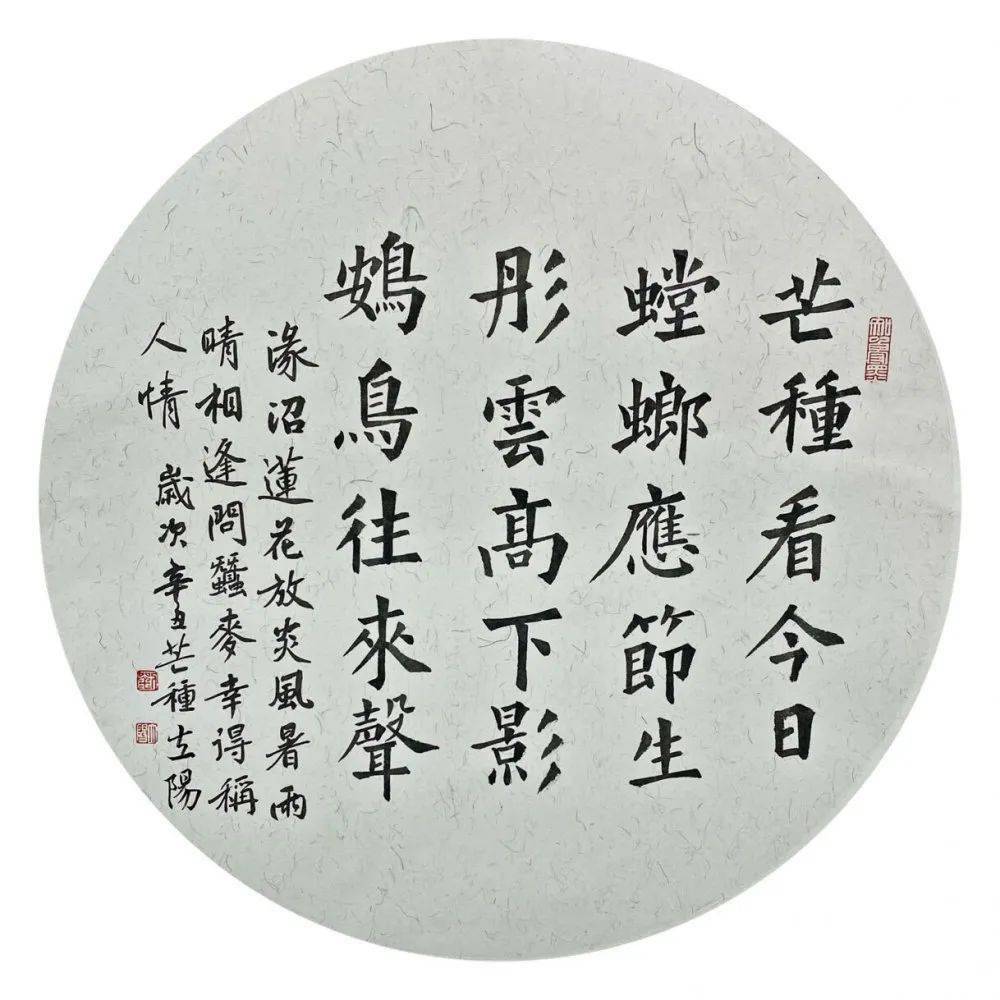 芒種看今日
螳螂應節生
彤雲髙下影
鴳鳥往來聲
渌沼蓮花放炎風暑雨
晴相逢問蠶麥幸得稱
人情 歲次辛丑芒種立陽